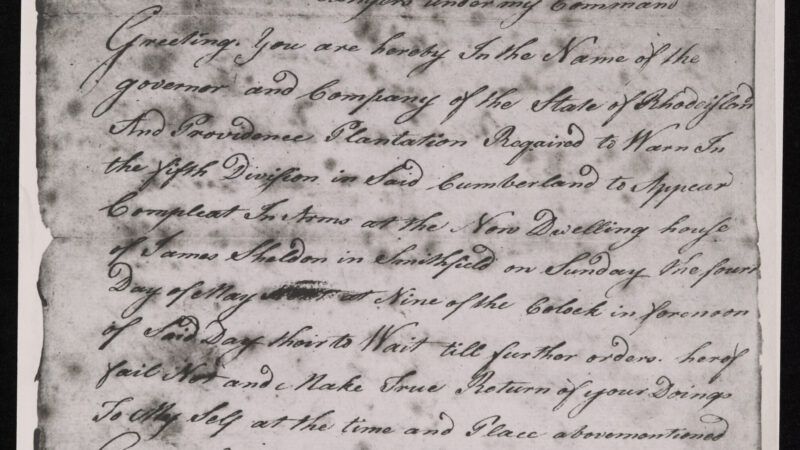 under my Command
Greeting. You are hereby In the Name of the
governor and Company of the State of Rhodeisland
And Providence Plantation Required to Warn In
the fifth Division in Said Cumberland to Appear
Compleat In Arms at the Now Dwelling house
of James Sheldon in Smithfield on Sunday the fourt
Day of May at Nine of the Colock in forenoon
of Said Day thoir to Wait till further orders. herof
fail Not and Make True Return of your Doings
To My Self at the time and Place abovementioned